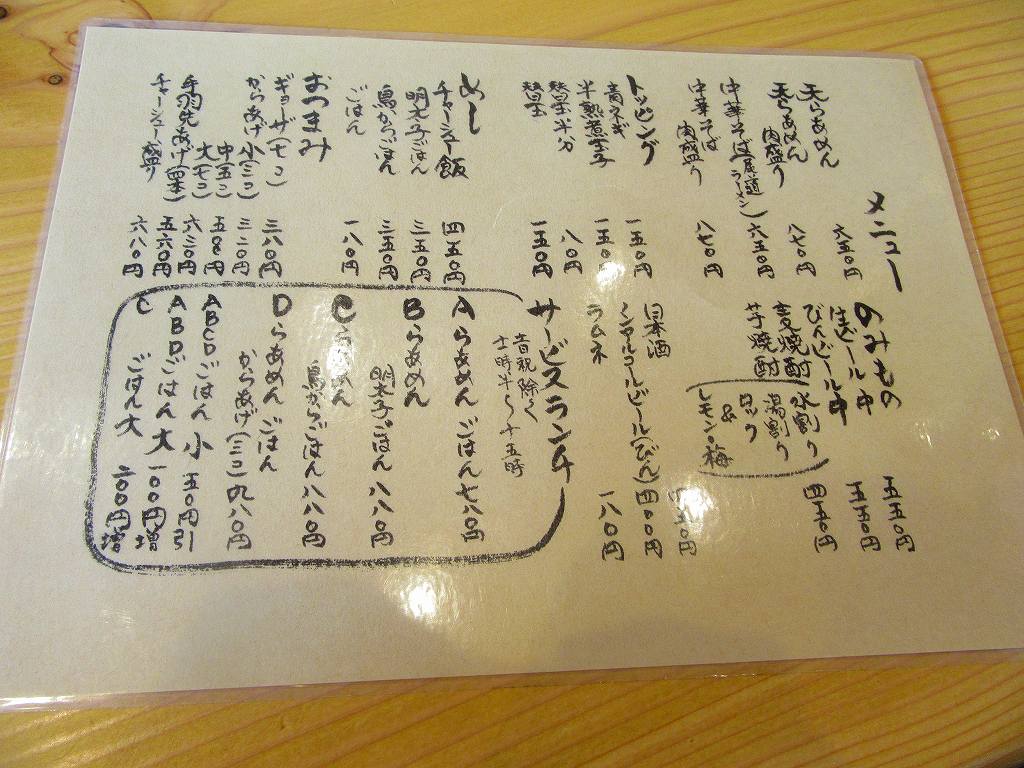 メニュー
天らぁめん 六五〇円
天らぁめん 肉盛り 八七〇円
中華そば(尾道ラーメン) 六五〇円
中華そば 肉盛り 八七〇円
トッピング
青ネギ 一五〇円
半熟煮玉子 一五〇円
替玉半分 八〇円
替玉 一五〇円
めし
チャーシュー飯 四五〇円
明太子ごはん 三五〇円
鳥からごはん 三五〇円
ごはん 一八〇円
おつまみ
ギョーザ(七コ) 三八〇円
からあげ 小(三コ) 三二〇円
中(五コ) 五〇〇円
大(七コ) 六三〇円
手羽先あげ(四本) 五六〇円
チャーシュー盛り 六八〇円
のみもの
生ビール 中 五五〇円
びんビール 中 五五〇円
麦焼酎 水割り 四五〇円
芋焼酎 湯割り
ロック
&
レモン・梅
日本酒 四五〇円
ノンアルコールビール(びん) 四〇〇円
ラムネ 一八〇円
サービスランチ
土日祝除く
十一時半〜十五時
A らぁめん ごはん 七八〇円
B らぁめん
明太子ごはん 八八〇円
C らぁめん
鳥からごはん 八八〇円
D らぁめん ごはん
からあげ(三コ) 九八〇円
ABCDごはん 小 五〇円引
ABDごはん 大 一〇〇円増
C ごはん 大 二〇〇円増